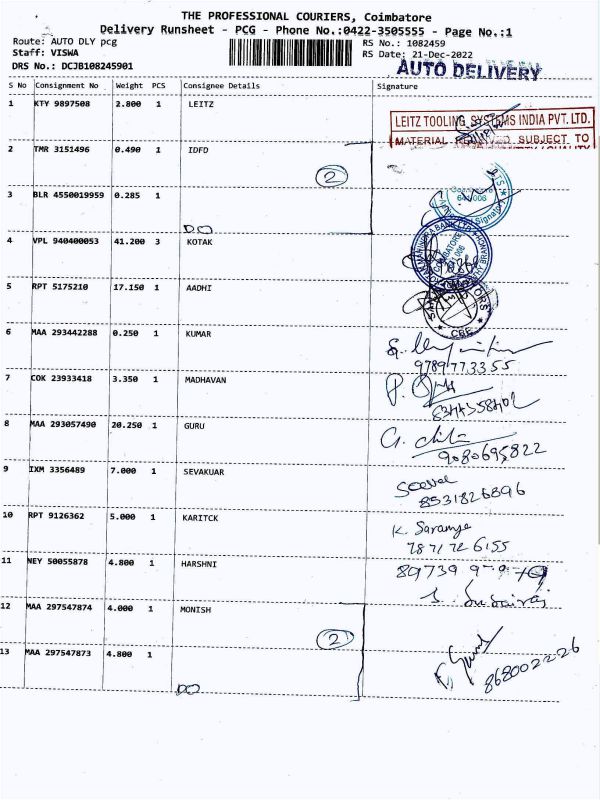 THE PROFESSIONAL COURIERS, Coimbatore
Delivery Runsheet - PCG - Phone No.:0422-3505555 - Page No.:1
Route: AUTO DLY pcg
RS No.: 1082459
Staff: VISWA
RS Date: 21-Dec-2022
DRS No.: DCJB108245901
AUTO DELIVERY
S No Consignment No Weight PCS Consignee Details Signature
1 KTY 9897508 2.800 1 LEITZ
LEITZ TOOLING SYSTEMS INDIA PVT. LTD.
MATERIAL SUBJECT TO
2 TMR 3151496 0.490 1 IDFD
2
3 BLR 4550019959 0.285 1
DO
4 VPL 940400053 41.200 3 KOTAK
5 RPT 5175210 17.150 1 AADHI
CBE
6 MAA 293442288 0.250 1 KUMAR
9789773355
7 COK 23933418 3.350 1 MADHAVAN
8 MAA 293057490 20.250 1 GURU
9080695822
9 IXM 3356489 7.000 1 SEVAKUAR
8531826896
10 RPT 9126362 5.000 1 KARITCK
K. Saranya
7871726155
11 NEY 50055878 4.800 1 HARSHNI
12 MAA 297547874 4.000 1 MONISH
2
13 MAA 297547873 4.800 1
DO